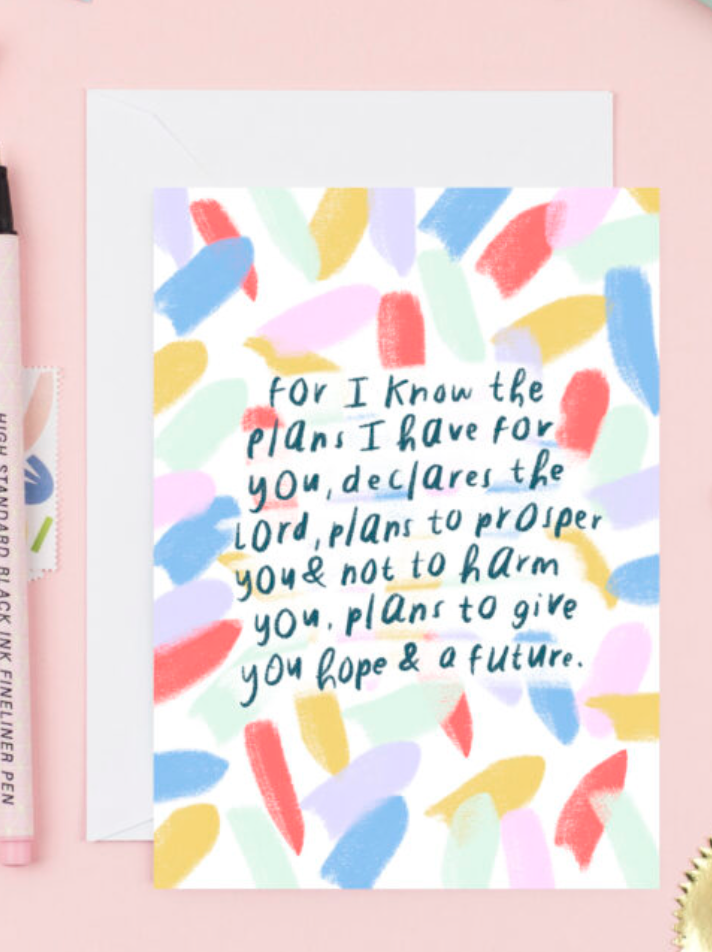 For I know the
plans I have for
you, declares the
Lord, plans to prosper
you & not to harm
you, plans to give
you hope & a future.
HIGH STANDARD BLACK INK FINELINER PEN